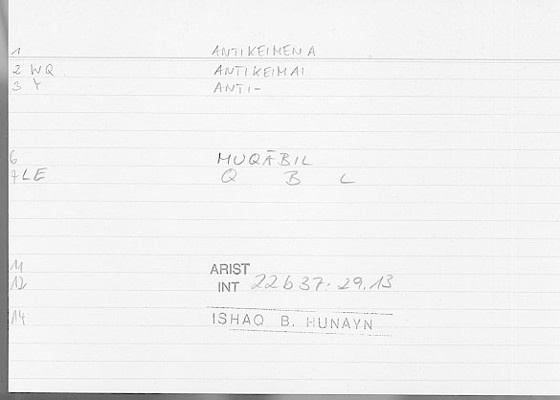 1 ANTIKEIMENA
2 WQ ANTIKEIMAI
3 Y ANTI-
6 MUQĀBIL
7 LE Q B L
11 ARIST
12 INT 22b37. 29.13
14 ISHAQ B. HUNAYN